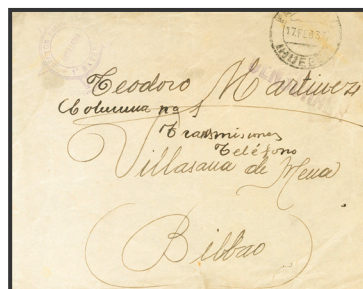 17.FEB.37
Teodoro Martinez
Columna nº 1
Transmisiones
Teléfono
Villasana de Mena
Bilbao